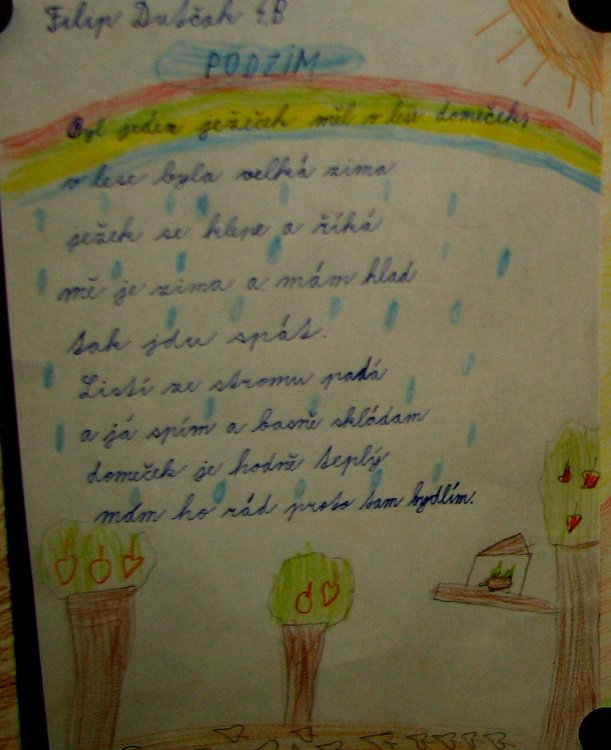 Filip Dutčak 4.B
PODZIM
Byl jeden ježeček měl v lese domeček,
v lese byla velká zima
ježek se klepe a říká
mě je zima a mám hlad
tak jdu spát.
Listí ze stromu padá
a já spím a basně skládam
domeček je hodně teplý
mám ho rád proto tam bydlím.